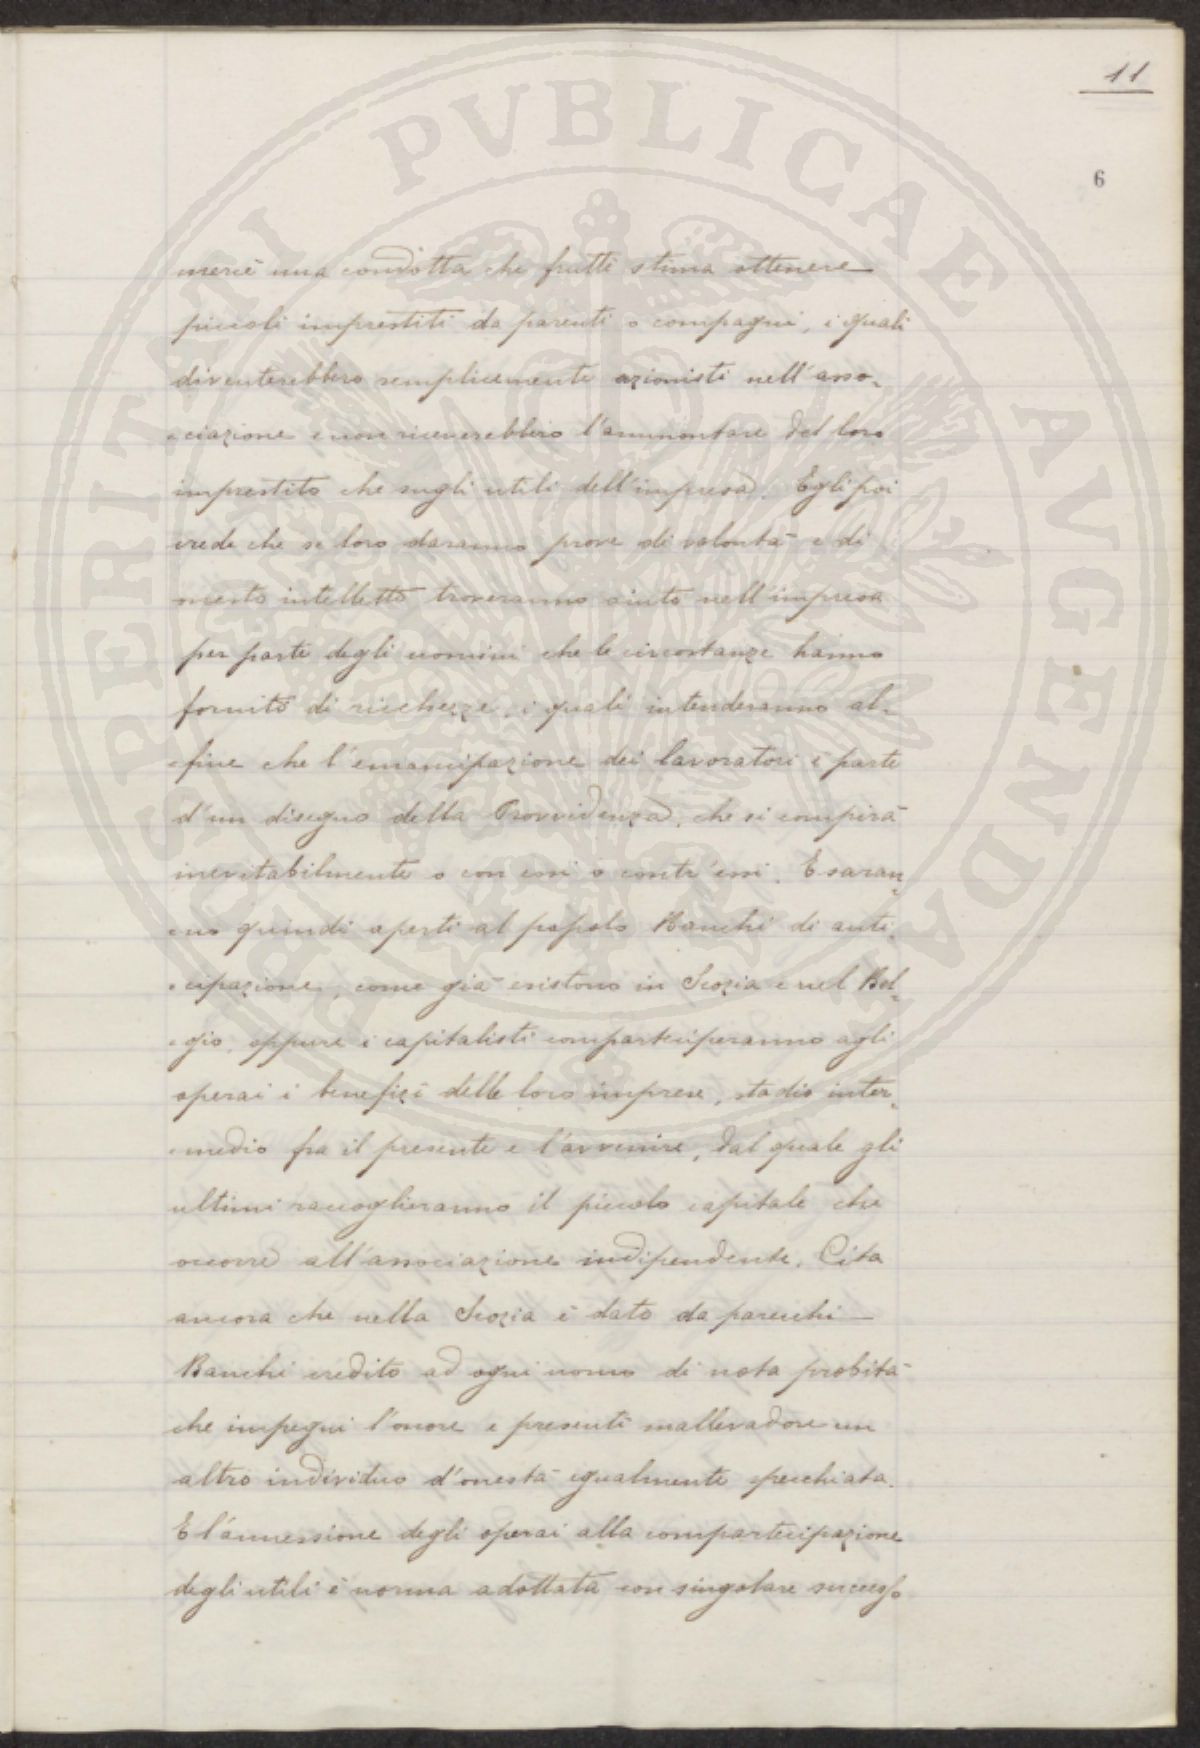 11
6
mercè una condotta che frutti stima ottenere
piccoli imprestiti da parenti o compagni, i quali
diventerebbero semplicemente azionisti nell'asso-
-ciazione e non riceverebbero l'ammontare del loro
imprestito che sugli utili dell'impresa. Egli poi
crede che se loro daranno prove di volontà e di
onesto intelletto troveranno aiuto nell'impresa
per parte degli uomini che le circostanze hanno
fornito di ricchezze, i quali intenderanno al-
-fine che l'emancipazione dei lavoratori è parte
d'un disegno della Provvidenza, che si compirà
inevitabilmente o con essi o contr'essi. E saran-
-no quindi aperti al popolo Banchi di anti-
-cipazione, come già esistono in Scozia e nel Bel-
-gio, oppure i capitalisti comparteciperanno agli
operai i benefizi delle loro imprese, stadio inter-
-medio fra il presente e l'avvenire, dal quale gli
ultimi raccoglieranno il piccolo capitale che
occorre all'associazione indipendente. Cita
ancora che nella Scozia è dato da parecchi
Banchi credito ad ogni uomo di nota probità
che impegni l'onore e presenti mallevadore un
altro individuo d'onestà egualmente specchiata.
E l'ammessione degli operai alla compartecipazione
degli utili è norma adottata con singolare successo
PROSPERITATI PVBLICAE AVGENDAE